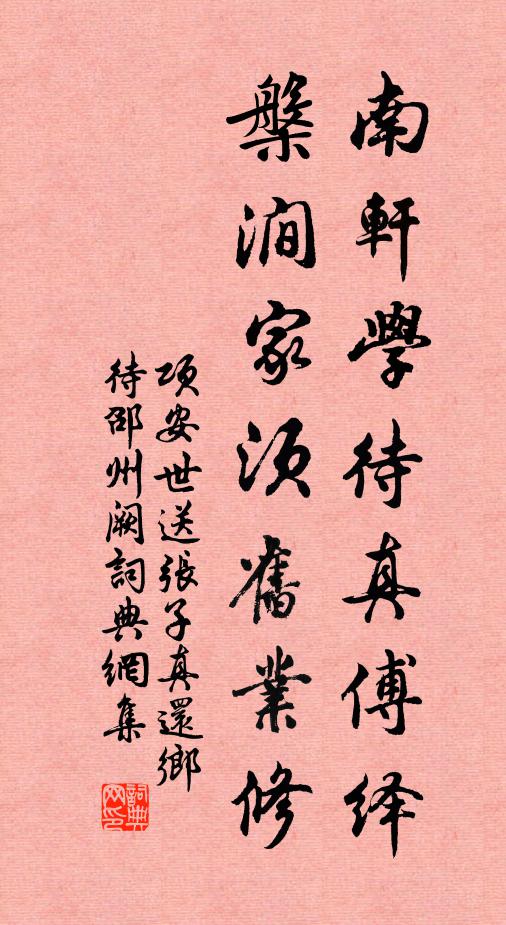 南軒學待真傅绎
槃澗家須舊業修
项安世送張子真還鄉
待邵州阙詞典網集
詞典网印